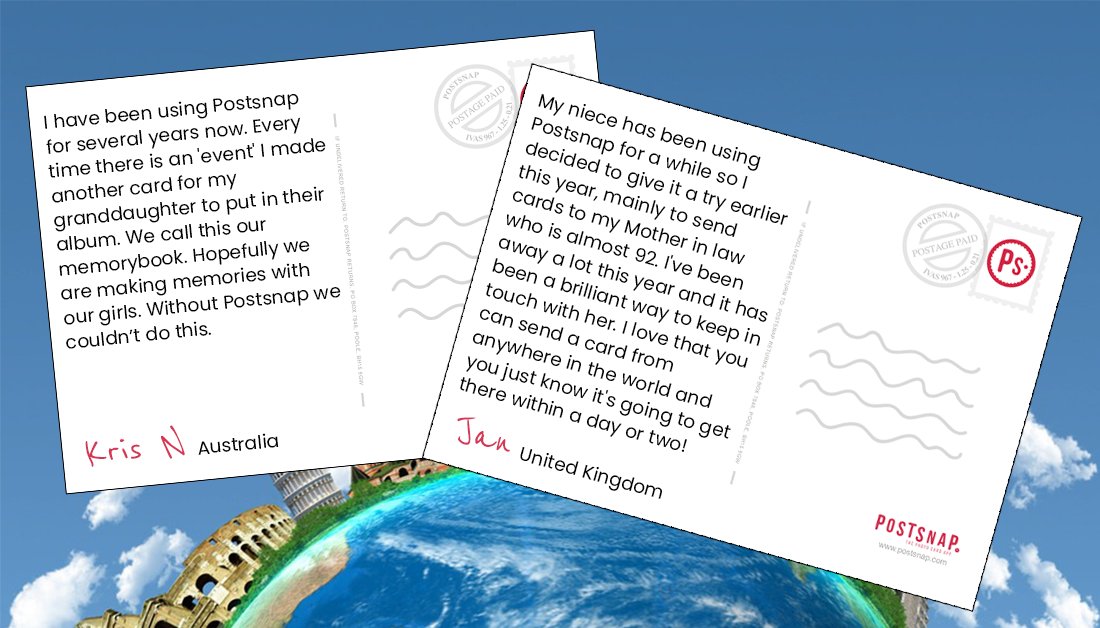 I have been using Postsnap
for several years now. Every
time there is an 'event' I made
another card for my
granddaughter to put in their
album. We call this our
memorybook. Hopefully we
are making memories with
our girls. Without Postsnap we
couldn't do this.
Kris N Australia
IF UNDELIVERED RETURN TO POSTSNAP RETURNS, PO BOX 7646, POOLE, BH15 9GW
POSTSNAP
POSTAGE PAID
IVAS 967 - 1.25 - 0.21
My niece has been using
Postsnap for a while so I
decided to give it a try earlier
this year, mainly to send
cards to my Mother in law
who is almost 92. I've been
away a lot this year and it has
been a brilliant way to keep in
touch with her. I love that you
can send a card from
anywhere in the world and
you just know it's going to get
there within a day or two!
Jan United Kingdom
IF UNDELIVERED RETURN TO POSTSNAP RETURNS, PO BOX 7646, POOLE, BH15 9GW
POSTSNAP
POSTAGE PAID
IVAS 967 - 1.25 - 0.21
Ps.
POSTSNAP.
THE PHOTO CARD APP
www.postsnap.com